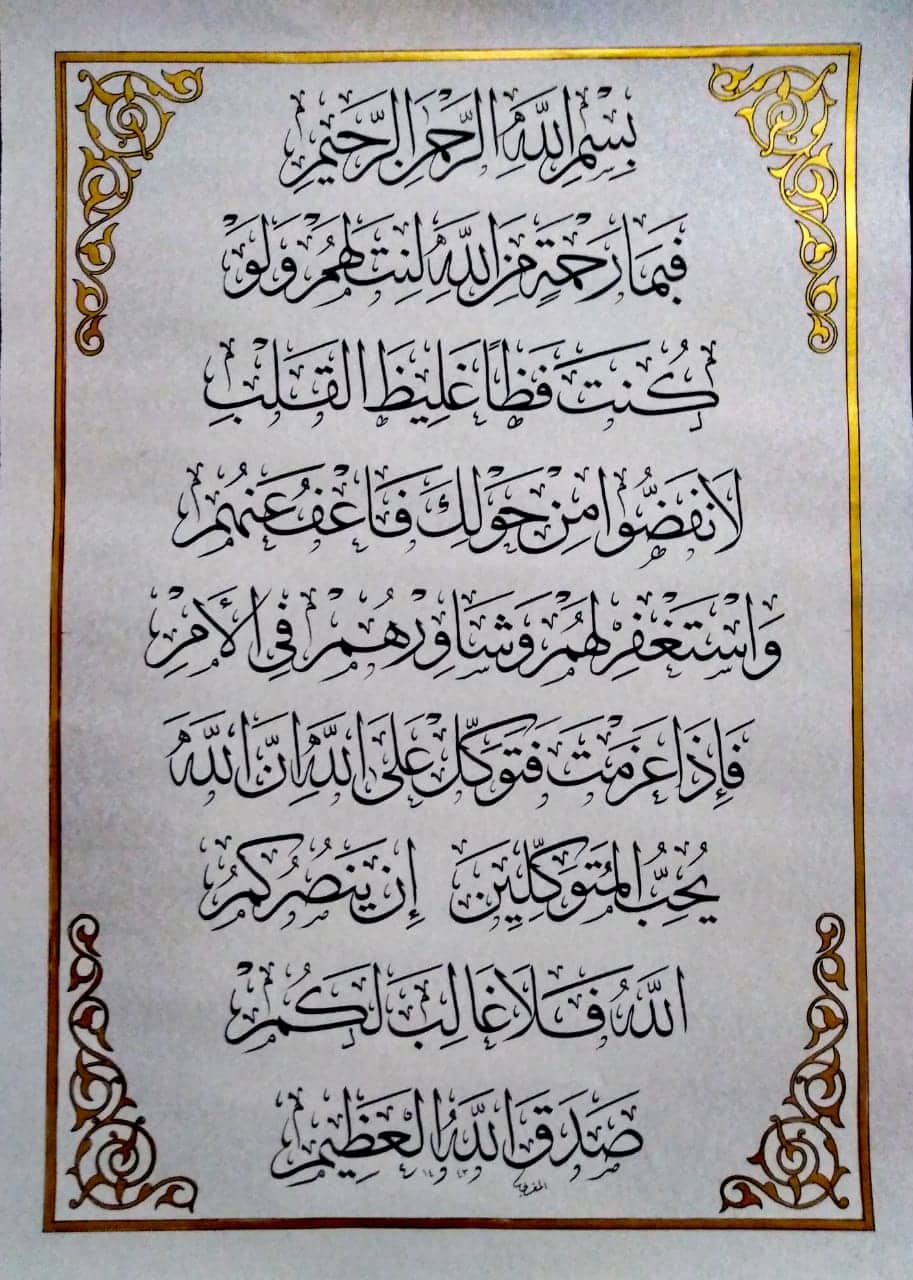 بِسْمِ اللَّهِ الرَّحْمَنِ الرَّحِيمِ
فَبِمَا رَحْمَةٍ مِنَ اللَّهِ لِنْتَ لَهُمْ وَلَوْ
كُنْتَ فَظًّا غَلِيظَ الْقَلْبِ
لَانْفَضُّوا مِنْ حَوْلِكَ فَاعْفُ عَنْهُمْ
وَاسْتَغْفِرْ لَهُمْ وَشَاوِرْهُمْ فِي الْأَمْرِ
فَإِذَا عَزَمْتَ فَتَوَكَّلْ عَلَى اللَّهِ إِنَّ اللَّهَ
يُحِبُّ الْمُتَوَكِّلِينَ إِنْ يَنْصُرْكُمُ
اللَّهُ فَلَا غَالِبَ لَكُمْ
صَدَقَ اللَّهُ الْعَظِيمُ